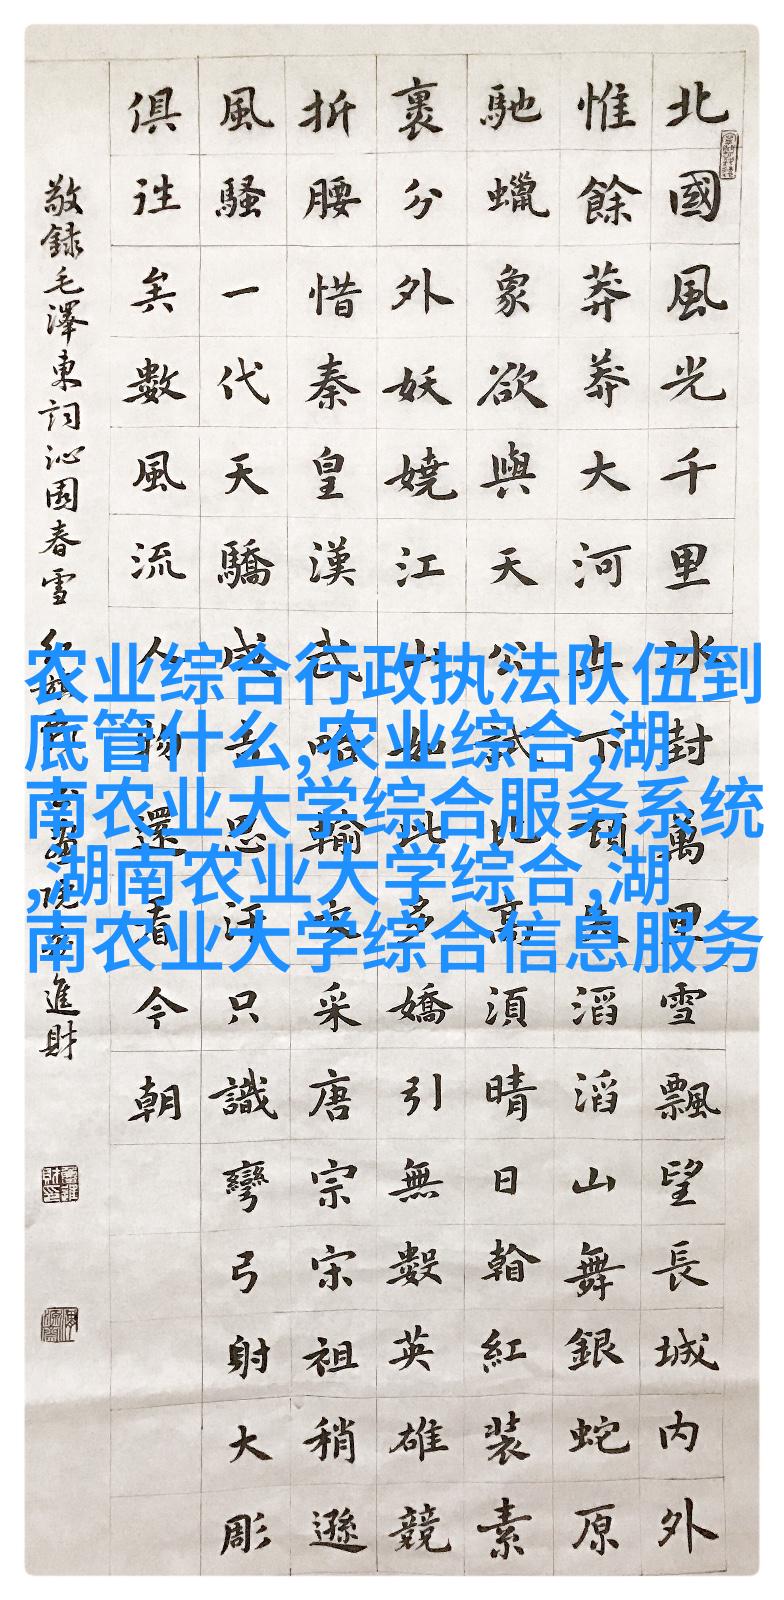 北國風光千里冰封萬里雪飄望長城内外
惟餘莽莽大河上下頓失滔滔山舞銀蛇原
馳蠟象欲與天公試比高須晴日翰紅裝素
裹分外妖嬈江山如此多嬌引無數英雄競
折腰惜秦皇漢武略輸文采唐宗宋祖稍遜
風騷一代天驕成吉思汗只識彎弓射大彫
俱往矣數風流人物還看今朝
敬録毛澤東詞沁園春雪 進財
农业综合行政执法队伍到
底管什么,农业综合,湖
南农业大学综合服务系统
,湖南农业大学综合,湖
南农业大学综合信息服务